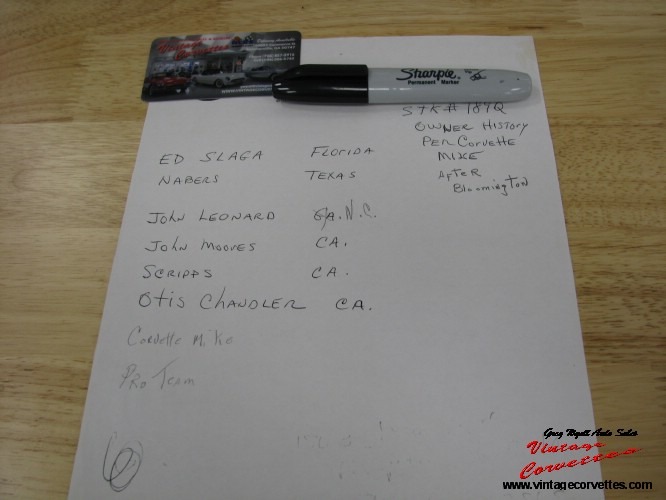 Vintage
Corvettes
Sharpie
Permanent Marker
STK# 189Q
OWNER HISTORY
PER CORVETTE
MIKE
AFTER
Bloomington
ED SLAGA FLORIDA
NABERS TEXAS
JOHN LEONARD GA. N.C.
JOHN MOOVES CA.
SCRIPPS CA.
OTIS CHANDLER CA.
Corvette Mike
PRO TEAM
6
Greg Wyatt Auto Sales
Vintage
Corvettes
www.vintagecorvettes.com